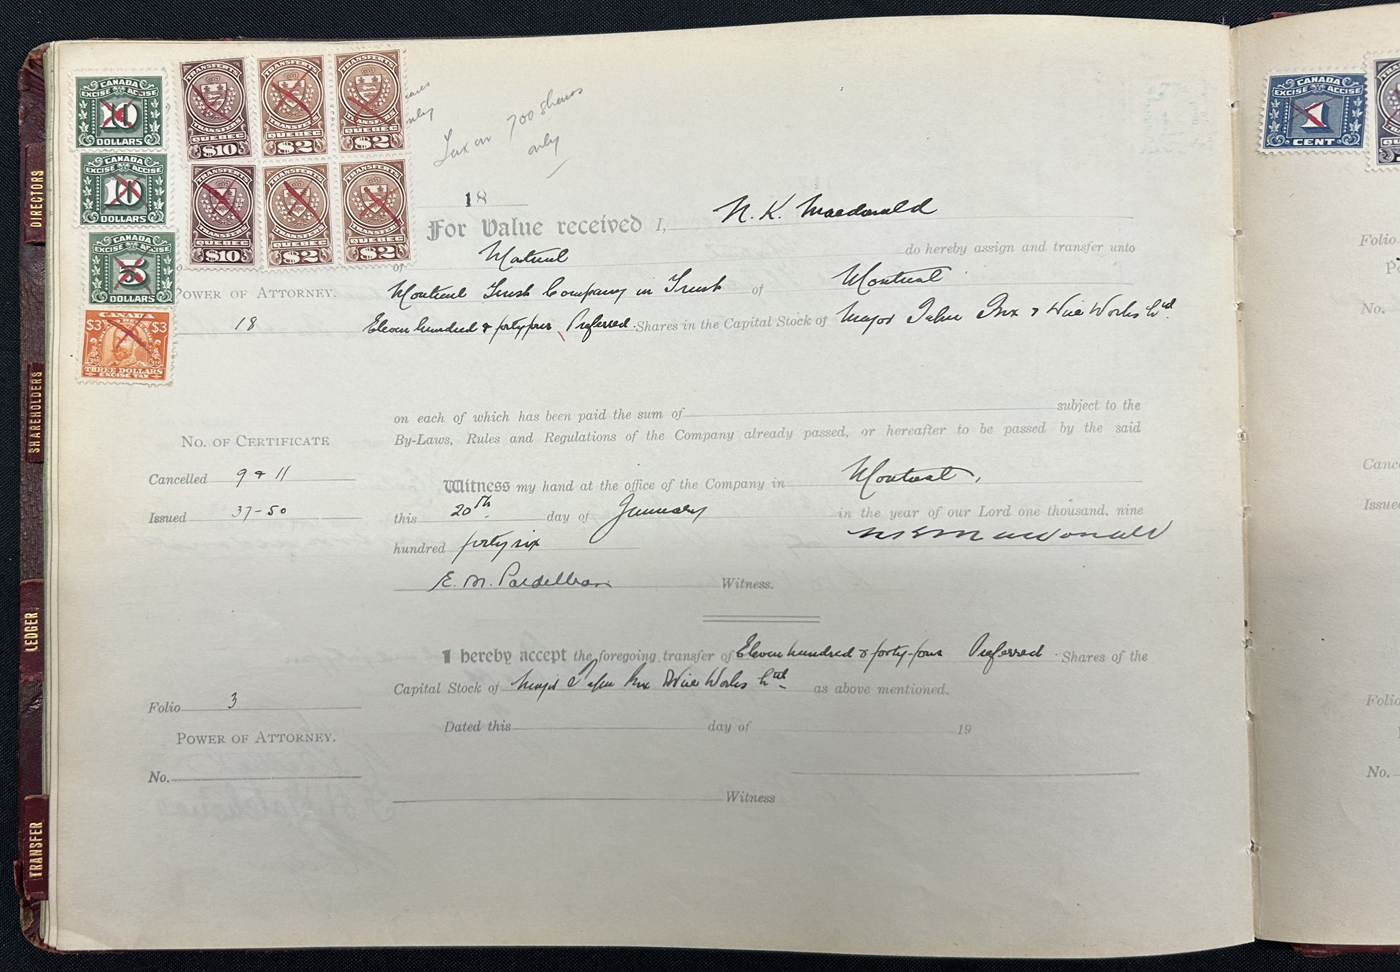 CANADA
EXCISE ACCISE
10
DOLLARS
CANADA
EXCISE ACCISE
10
DOLLARS
CANADA
EXCISE ACCISE
5
DOLLARS
CANADA
$3 $3
THREE DOLLARS
EXCISE TAX
TRANSFERTS
TRANSFERS
QUEBEC
$10
TRANSFERTS
TRANSFERS
QUEBEC
$2
TRANSFERTS
TRANSFERS
QUEBEC
$2
TRANSFERTS
TRANSFERS
QUEBEC
$10
TRANSFERTS
TRANSFERS
QUEBEC
$2
TRANSFERTS
TRANSFERS
QUEBEC
$2
Tax on 700 shares
only
18
For Value received I, N. K. Macdonald
of Montreal do hereby assign and transfer unto
POWER OF ATTORNEY. Montreal Trust Company in Trust of Montreal
18 Eleven hundred & forty four Preferred Shares in the Capital Stock of Major Wire Works Ltd
on each of which has been paid the sum of subject to the
By-Laws, Rules and Regulations of the Company already passed, or hereafter to be passed by the said
NO. OF CERTIFICATE
Cancelled 9 & 11
Witness my hand at the office of the Company in Montreal,
Issued 37-50
this 20th day of January in the year of our Lord one thousand, nine
hundred forty six
E. M. Witness.
I hereby accept the foregoing transfer of Eleven hundred & forty-four Preferred Shares of the
Capital Stock of Major Wire Works Ltd as above mentioned.
Folio 3
Dated this day of 19
POWER OF ATTORNEY.
No.
Witness
DIRECTORS
SHAREHOLDERS
LEDGER
TRANSFER
CANADA
EXCISE ACCISE
1
CENT
Folio
No.
Issued
Folio
No.